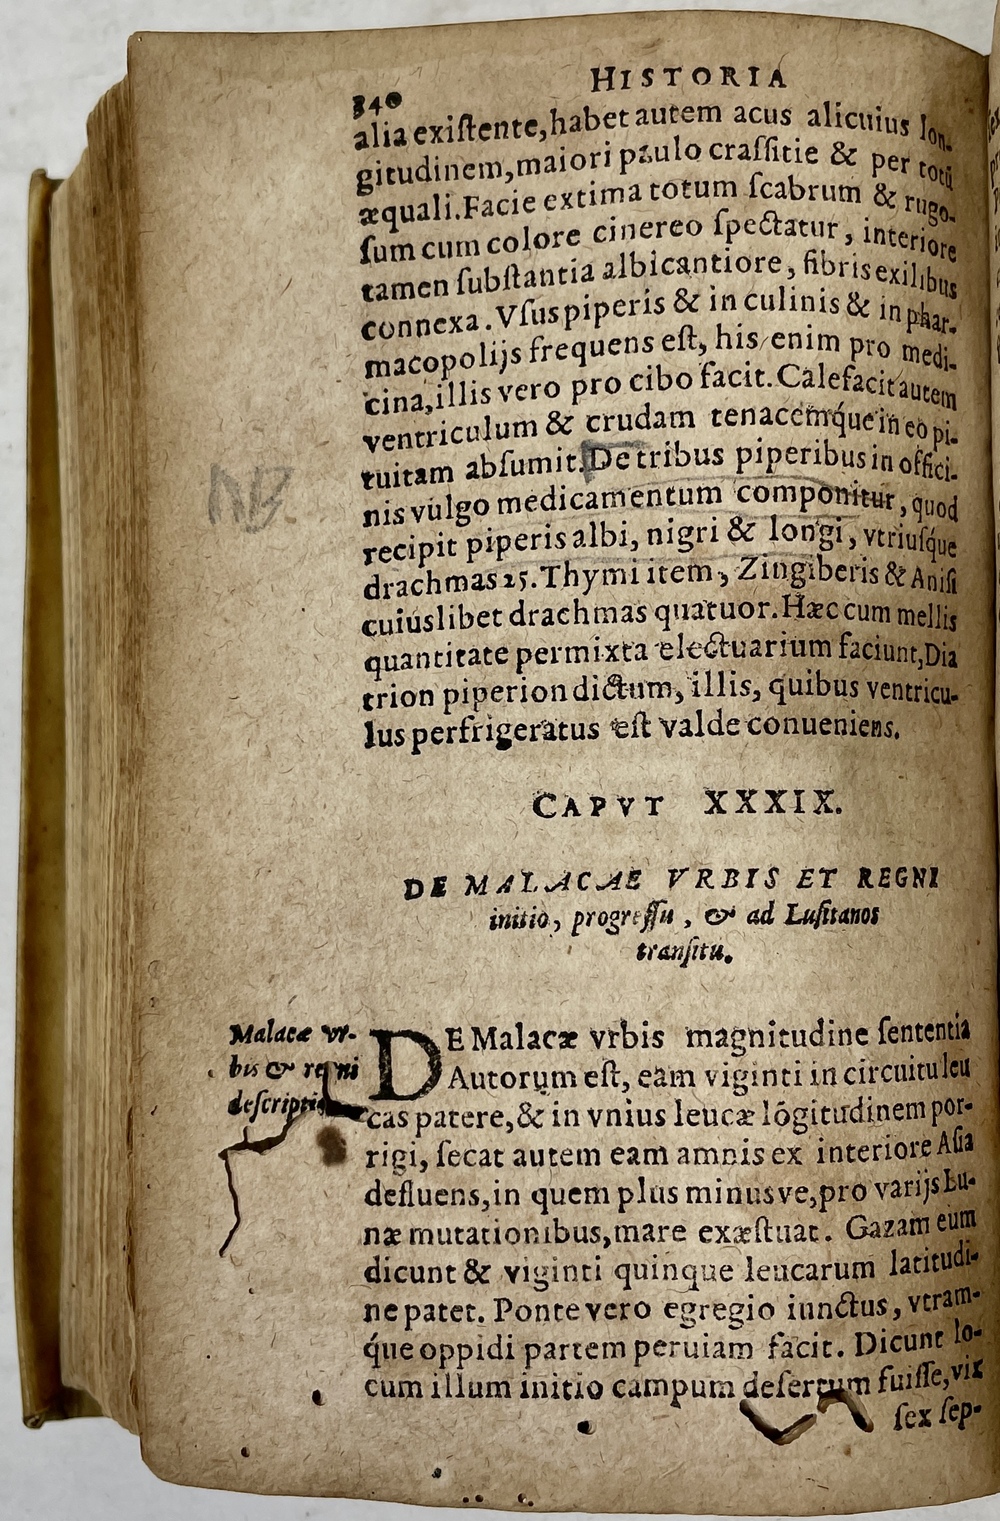 340 HISTORIA
alia exiſtente, habet autem acus alicuius lon-
gitudinem, maiori paulo craſſitie & per totũ
æquali. Facie extima totum ſcabrum & rugo-
ſum cum colore cinereo ſpectatur, interiore
tamen ſubſtantia albicantiore, fibris exilibus
connexa. Vſus piperis & in culinis & in phar-
macopolijs frequens eſt, his enim pro medi-
cina, illis vero pro cibo facit. Calefacit autem
ventriculum & crudam tenacemq́ue in eo pi-
tuitam abſumit. De tribus piperibus in offici-
NB.
nis vulgo medicamentum componitur, quod
recipit piperis albi, nigri & longi, vtriuſq́ue
drachmas 25. Thymi item, Zingiberis & Aniſi
cuiuslibet drachmas quatuor. Hæc cum mellis
quantitate permixta electuarium faciunt, Dia
trion piperion dictum, illis, quibus ventricu-
lus perfrigeratus eſt valde conueniens.
CAPVT XXXIX.
DE MALACAE VRBIS ET REGNI
initio, progreſſu, & ad Luſitanos
tranſitu.
Malacæ vr-
bis & regni
deſcriptio
DE Malacæ vrbis magnitudine ſententia
Autorum eſt, eam viginti in circuitu leu
cas patere, & in vnius leucæ lõgitudinem por-
rigi, ſecat autem eam amnis ex interiore Aſia
defluens, in quem plus minusve, pro varijs Lu-
næ mutationibus, mare exæſtuat. Gazam eum
dicunt & viginti quinque leucarum latitudi-
ne patet. Ponte vero egregio iunctus, vtram-
q́ue oppidi partem peruiam facit. Dicunt lo-
cum illum initio campum deſertum fuiſſe, vix
ſex ſep-